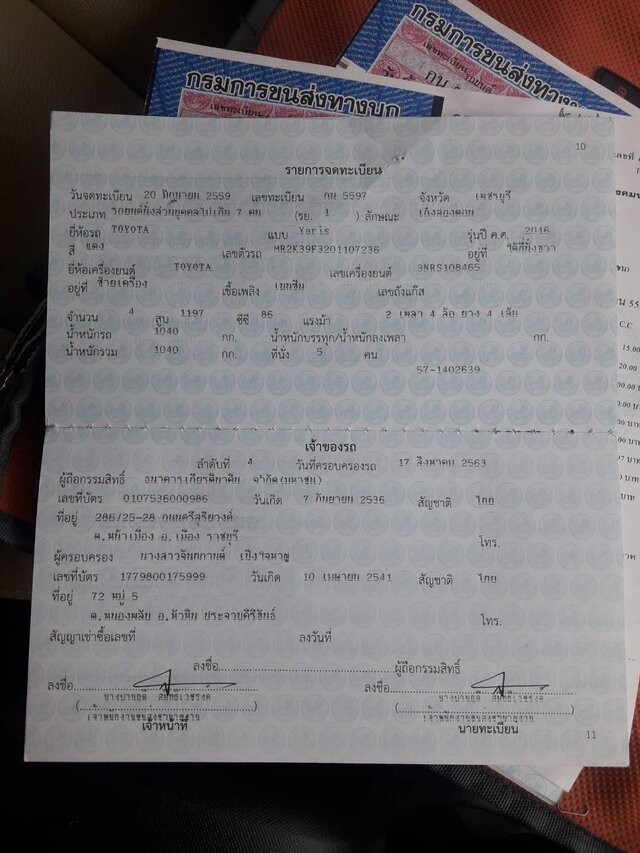 กรมการขนส่งทางบก
เลขทะเบียน
กรมการขนส่งทางบก
10
รายการจดทะเบียน
วันจดทะเบียน 20 มิถุนายน 2559 เลขทะเบียน กน 5597 จังหวัด เพชรบุรี
ประเภท รถยนต์นั่งส่วนบุคคลไม่เกิน 7 คน (รย. 1 ) ลักษณะ เก๋งสองตอน
ยี่ห้อรถ TOYOTA แบบ Yaris รุ่นปี ค.ศ. 2016
สี แดง เลขตัวรถ MR2K39F3201107236 อยู่ที่ ใต้ที่นั่งขวา
ยี่ห้อเครื่องยนต์ TOYOTA เลขเครื่องยนต์ 3NRS108465
อยู่ที่ ซ้ายเครื่อง เชื้อเพลิง เบนซิน เลขถังแก๊ส
จำนวน 4 สูบ 1197 ซีซี 86 แรงม้า 2 เพลา 4 ล้อ ยาง 4 เส้น
น้ำหนักรถ 1040 กก. น้ำหนักบรรทุก/น้ำหนักลงเพลา กก.
น้ำหนักรวม 1040 กก. ที่นั่ง 5 คน
57-1402639
เจ้าของรถ
ลำดับที่ 4 วันที่ครอบครองรถ 17 สิงหาคม 2563
ผู้ถือกรรมสิทธิ์ ธนาคารเกียรตินาคิน จำกัด(มหาชน)
เลขที่บัตร 0107536000986 วันเกิด 7 กันยายน 2536 สัญชาติ ไทย
ที่อยู่ 286/25-28 ถนนศรีสุริยวงค์
ต.หน้าเมือง อ.เมือง ราชบุรี โทร.
ผู้ครอบครอง นางสาวจันทกานต์
เลขที่บัตร 1779800175999 วันเกิด 10 เมษายน 2541 สัญชาติ ไทย
ที่อยู่ 72 หมู่ 5
ต.หนองพลับ อ.หัวหิน ประจวบคีรีขันธ์ โทร.
สัญญาเช่าซื้อเลขที่ ลงวันที่
ลงชื่อ ผู้ถือกรรมสิทธิ์
ลงชื่อ ลงชื่อ
เจ้าพนักงานขนส่งชำนาญงาน เจ้าพนักงานขนส่งชำนาญงาน
เจ้าหน้าที่ นายทะเบียน
11